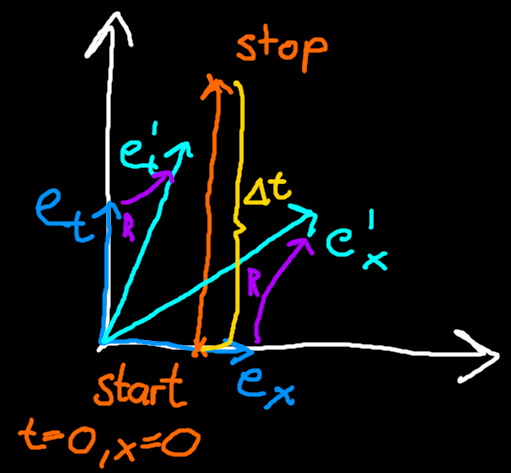 stop
e't
Δt
et
R
e'x
R
start
ex
t=0,x=0